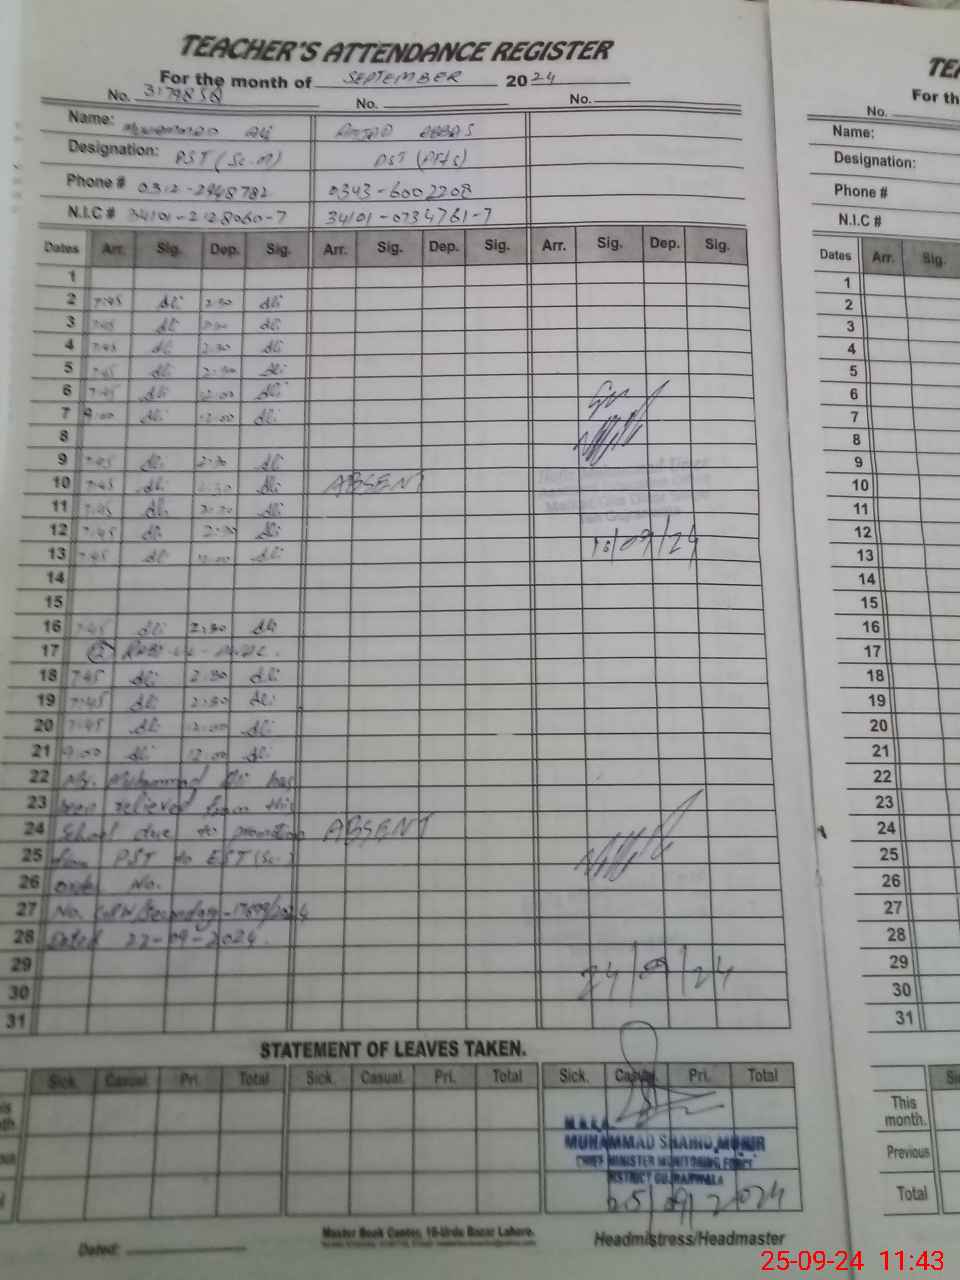 TEACHER'S ATTENDANCE REGISTER
For the month of SEPTEMBER 2024
No. 3179858 No. No.
Name: Muhammad Ali AMJAD ABBAS
Designation: PST (Sc.M) PST
Phone # 0312-2948782 0343-6002208
N.I.C # 34101-2128060-7 34101-0734761-7
Dates Arr. Sig. Dep. Sig. Arr. Sig. Dep. Sig. Arr. Sig. Dep. Sig.
1
2 7:45 Ali 2:30 Ali
3 7:45 Ali 2:30 Ali
4 7:45 Ali 2:30 Ali
5 7:45 Ali 2:30 Ali
6 7:45 Ali 12:00 Ali
7 9:00 Ali 12:00 Ali
8
9 7:45 Ali 2:30 Ali
10 7:45 Ali 2:30 Ali ABSENT
11 7:45 Ali 2:30 Ali
12 7:45 Ali 2:30 Ali
13 7:45 Ali 12:00 Ali /09/24
14
15
16 7:45 Ali 2:30 Ali
17
18 7:45 Ali 2:30 Ali
19 7:45 Ali 2:30 Ali
20 7:45 Ali 12:00 Ali
21 9:00 Ali 12:00 Ali
22 Mr. Muhammad Ali has
23 been relieved from this
24 School due to promotion ABSENT
25 from PST to EST (Sc.)
26 order No.
27 No. /Secondary- /2024
28 Dated 22-09-2024.
29
30 24/09/24
31
STATEMENT OF LEAVES TAKEN.
Sick. Casual. Pri. Total Sick. Casual. Pri. Total Sick. Casual. Pri. Total
M.E.A
MUHAMMAD SHAHID
CHIEF MINISTER MONITORING FORCE
DISTRICT GUJRANWALA
25/09/2024
Master Book Center, 10-Urdu Bazar Lahore.
Dated: Headmistress/Headmaster
For th
No.
Name:
Designation:
Phone #
N.I.C #
Dates Arr. Sig.
1
2
3
4
5
6
7
8
9
10
11
12
13
14
15
16
17
18
19
20
21
22
23
24
25
26
27
28
29
30
31
This
month.
Previous
Total
25-09-24 11:43